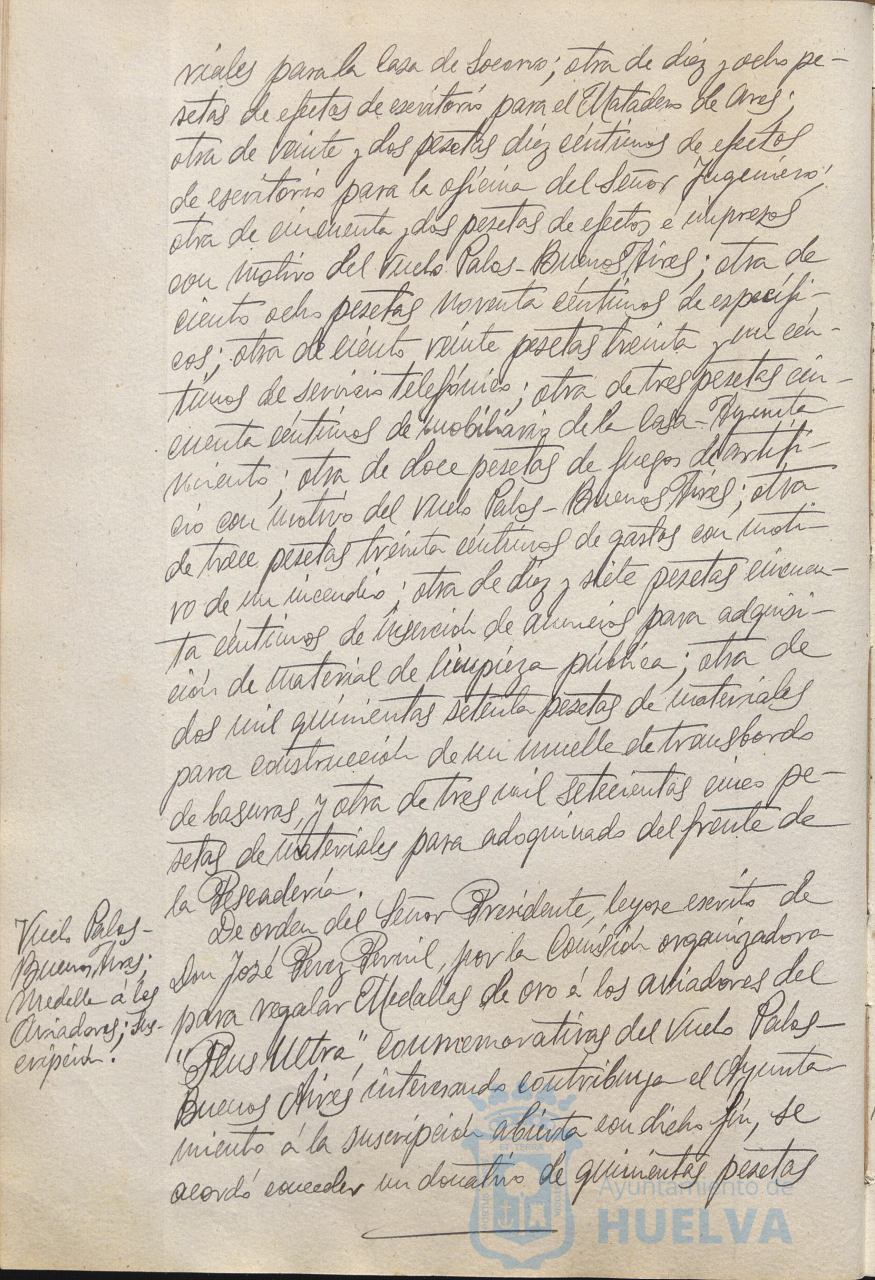 riales para la Casa de Socorro; otra de diez y ocho pe-
setas de efectos de escritorio para el Matadero de Aves;
otra de veinte y dos pesetas diez céntimos de efectos
de escritorio para la oficina del Señor Ingeniero;
otra de cincuenta y dos pesetas de efectos é impresos
con motivo del Vuelo Palos-Buenos Aires; otra de
ciento ocho pesetas noventa céntimos de específi-
cos; otra de ciento veinte pesetas treinta y un cén-
timos de servicio telefónico; otra de tres pesetas cin-
cuenta céntimos de mobiliario de la Casa-Ayunta
miento; otra de doce pesetas de fuegos de artifi-
cio con motivo del Vuelo Palos-Buenos Aires; otra
de trece pesetas treinta céntimos de gastos con moti-
vo de un incendio; otra de diez y siete pesetas cincuen-
ta céntimos de inserción de anuncios para adquisi-
ción de material de limpieza pública; otra de
dos mil quinientas setenta pesetas de materiales
para construcción de un muelle de transbordo
de basuras, y otra de tres mil setecientas cinco pe-
setas de materiales para adoquinado del frente de
la Pescadería.
Vuelo Palos-
Buenos Aires;
Medalla á los
Aviadores; sus-
cripción.
De orden del Señor Presidente, leyose escrito de
Don José Perez Pernil, por la Comisión organizadora
para regalar Medallas de oro á los aviadores del
"Plus Ultra", conmemorativas del Vuelo Palos-
Buenos Aires interesando contribuya el Ayunta-
miento á la suscripción abierta con dicho fin, se
acordó conceder un donativo de quinientas pesetas
Ayuntamiento de
HUELVA